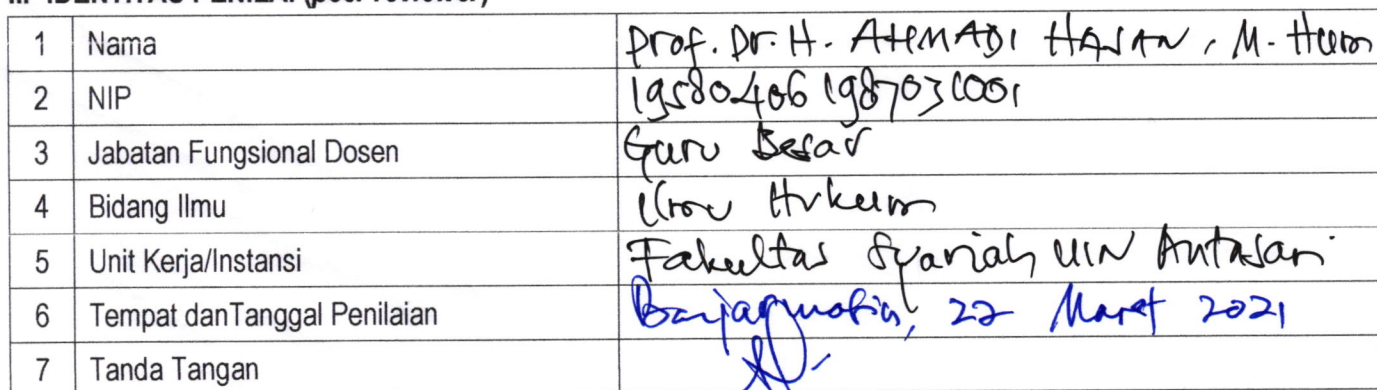 III IDENTITAS PENILAI (peer reviewer)
1 Nama Prof. Dr. H. AHMADI HASAN, M. Hum
2 NIP 195804061987031001
3 Jabatan Fungsional Dosen Guru Besar
4 Bidang Ilmu Ilmu Hukum
5 Unit Kerja/Instansi Fakultas Syariah UIN Antasari
6 Tempat danTanggal Penilaian Banjarmasin, 22 Maret 2021
7 Tanda Tangan